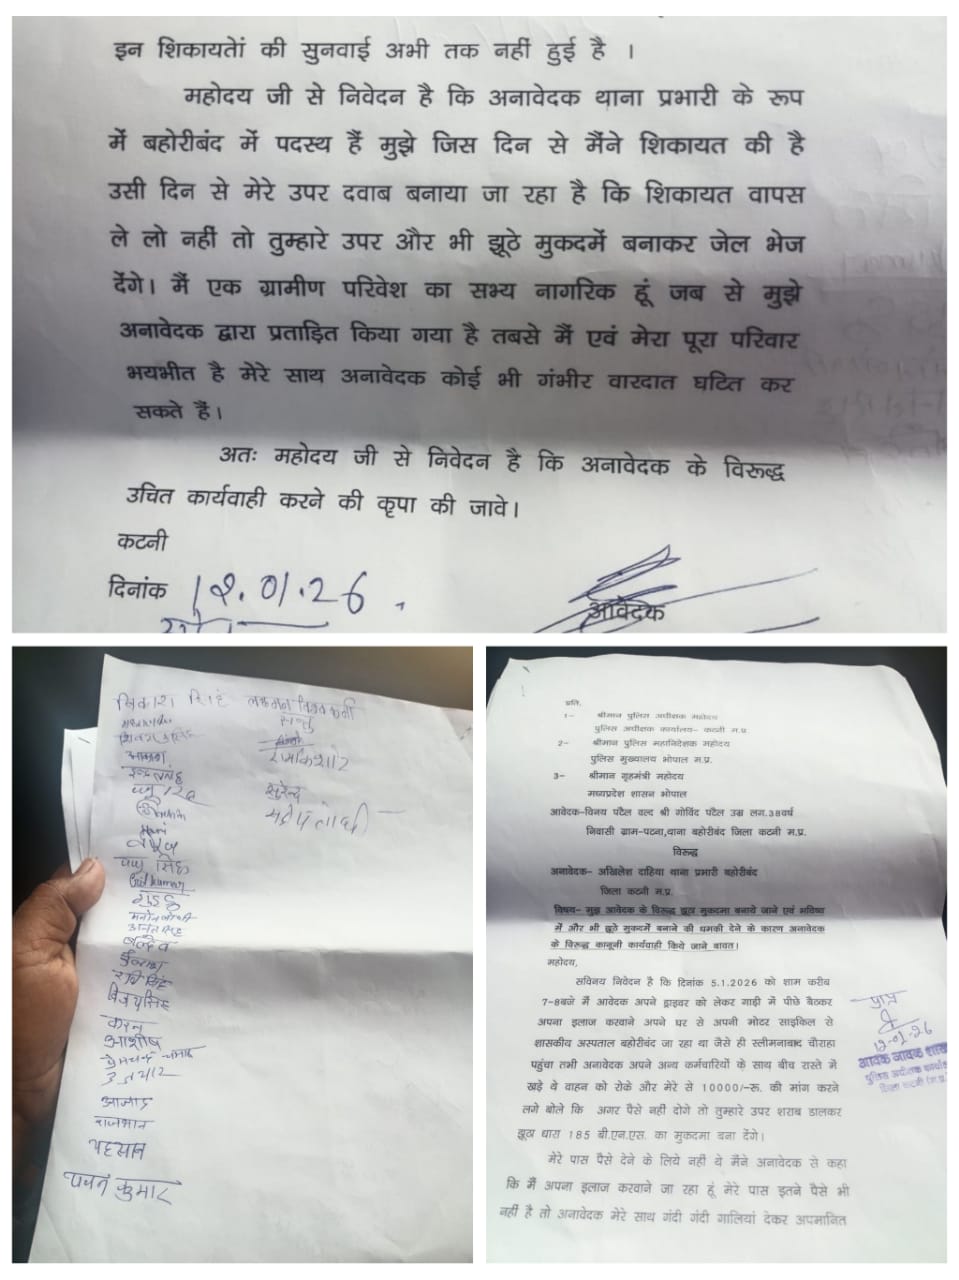 इन शिकायतेां की सुनवाई अभी तक नहीं हुई है ।
महोदय जी से निवेदन है कि अनावेदक थाना प्रभारी के रूप
में बहोरीबंद में पदस्थ हैं मुझे जिस दिन से मैंने शिकायत की है
उसी दिन से मेरे उपर दवाब बनाया जा रहा है कि शिकायत वापस
ले लो नहीं तो तुम्हारे उपर और भी झूठे मुकदमें बनाकर जेल भेज
देंगे। मैं एक ग्रामीण परिवेश का सभ्य नागरिक हूं जब से मुझे
अनावेदक द्वारा प्रताड़ित किया गया है तबसे मैं एवं मेरा पूरा परिवार
भयभीत है मेरे साथ अनावेदक कोई भी गंभीर वारदात घटित कर
सकते हैं।
अतः महोदय जी से निवेदन है कि अनावेदक के विरूद्ध
उचित कार्यवाही करने की कृपा की जावे।
कटनी
दिनांक 12.01.26
आवेदक
विकाश सिंह लक्षमन विश्वकर्मा
राजकिशोर
सुरेन्द्र
पप्पू सिंह
मनोज
बलदेव
रवि सिंह
विजय सिंह
करन
आशीष
आजाद
राजभान
पवन कुमार
प्रति,
1- श्रीमान पुलिस अधीक्षक महोदय
पुलिस अधीक्षक कार्यालय- कटनी म.प्र.
2- श्रीमान पुलिस महानिदेशक महोदय
पुलिस मुख्यालय भोपाल म.प्र.
3- श्रीमान गृहमंत्री महोदय
मध्यप्रदेश शासन भोपाल
आवेदक-विनय पटैल वल्द श्री गोविंद पटैल उम्र लग.38वर्ष
निवासी ग्राम-पटना,थाना बहोरीबंद जिला कटनी म.प्र.
विरूद्ध
अनावेदक- अखिलेश दाहिया थाना प्रभारी बहोरीबंद
जिला कटनी म.प्र.
विषय- मुझ आवेदक के विरूद्ध झूठा मुकदमा बनाये जाने एवं भविष्य
में और भी झूठे मुकदमें बनाने की धमकी देने के कारण अनावेदक
के विरूद्ध कानूनी कार्यवाही किये जाने बावत।
महोदय,
सविनय निवेदन है कि दिनांक 5.1.2026 को शाम करीब
7-8बजे में आवेदक अपने ड्राइवर को लेकर गाड़ी में पीछे बैठकर
अपना इलाज करवाने अपने घर से अपनी मोटर साइकिल से
शासकीय अस्पताल बहोरीबंद जा रहा था जैसे ही स्लीमनाबाद चौराहा
पहुंचा तभी अनावेदक अपने अन्य कर्मचारियों के साथ बीच रास्ते में
खड़े थे वाहन को रोके और मेरे से 10000/-रू. की मांग करने
लगे बोले कि अगर पैसे नहीं दोगे तो तुम्हारे उपर शराब डालकर
झूठा धारा 185 बी.एन.एस. का मुकदमा बना देंगे।
मेरे पास पैसे देने के लिये नहीं थे मैंने अनावेदक से कहा
कि मैं अपना इलाज करवाने जा रहा हूं मेरे पास इतने पैसे भी
नहीं है तो अनावेदक मेरे साथ गंदी गंदी गालियां देकर अपमानित
प्राप्त
12-01-26
आवक जावक शाखा
पुलिस अधीक्षक कार्यालय
जिला कटनी (म.प्र.)